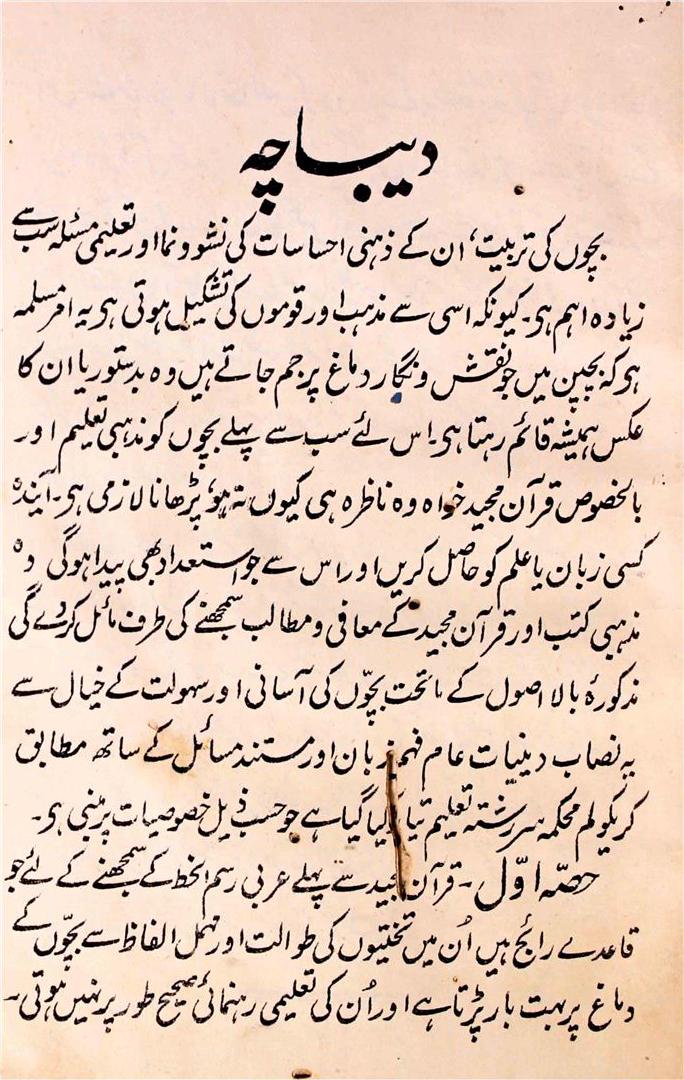 دیباچہ
بچوں کی تربیت، ان کے ذہنی احساسات کی نشوونما اور تعلیمی مسئلہ سب سے
زیادہ اہم ہی۔ کیونکہ اسی سے مذہب اور قوموں کی تشکیل ہوتی ہی یہ امر مسلمہ
ہی کہ بچپن میں جو نقش و نگار دماغ پر جم جاتے ہیں وہ بدستور یا ان کا
عکس ہمیشہ قائم رہتا ہی۔ اس لئے سب سے پہلے بچوں کو مذہبی تعلیم اور
بالخصوص قرآن مجید خواہ وہ ناظرہ ہی کیوں نہ ہو، پڑھانا لازمی ہی۔ آیندہ
کسی زبان یا علم کو حاصل کریں اور اس سے جو استعداد بھی پیدا ہوگی وہ
مذہبی کتب اور قرآن مجید کے معافی و مطالب سمجھنے کی طرف مائل کردے گی
مذکورۂ بالا اصول کے ماتحت بچّوں کی آسانی اور سہولت کے خیال سے
یہ نصاب دینیات عام فہم زبان اور مستند مسائل کے ساتھ مطابق
کریکولم محکمہ سررشتہ تعلیم تیار کیا گیا ہے جو حسب ذیل خصوصیات پر مبنی ہی۔
حصّہ اوّل ۔ قرآن مجید سے پہلے عربی رسم الخط کے سمجھنے کے لئے جو
قاعدے رائج ہیں اُن میں تختیوں کی طوالت اور مہمل الفاظ سے بچّوں کے
دماغ پر بہت بار پڑتا ہے اور اُن کی تعلیمی رہنمائی صحیح طور پر نہیں ہوتی۔